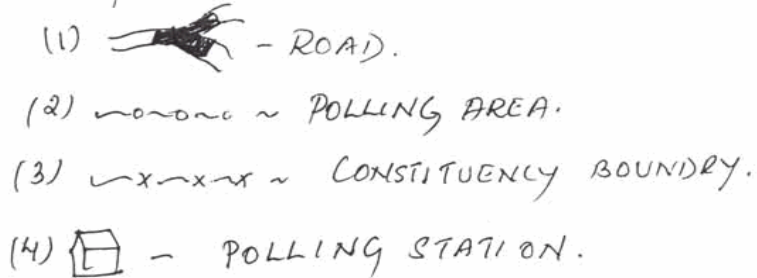 (1) - ROAD.
(2) ~o~o~o ~ POLLING AREA.
(3) ~x~x~x ~ CONSTITUENCY BOUNDRY.
(4) - POLLING STATION.